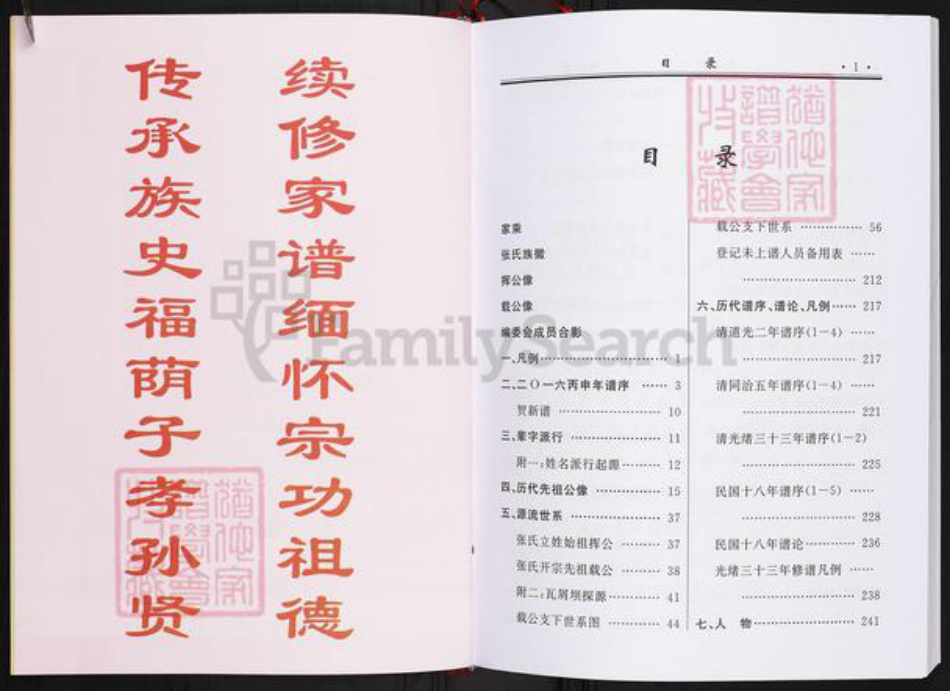 续修家谱缅怀宗功祖德
传承族史福荫子孝孙贤
目 录 ·1·
目 录
家乘
张氏族徽
挥公像
载公像
编委会成员合影
一、凡例……………………1
二、二〇一六丙申年谱序 ……3
贺新谱 ………………10
三、辈字派行 ……………11
附一:姓名派行起源………12
四、历代先祖公像 …………15
五、源流世系 ……………37
张氏立姓始祖挥公 ………37
张氏开宗先祖载公 ………38
附二:瓦屑坝探源…………41
载公支下世系图 …………44
载公支下世系 ……………56
登记未上谱人员备用表 ……
…………………212
六、历代谱序、谱论、凡例……217
清道光二年谱序(1-4) ……
…………………217
清同治五年谱序(1-4) ……
…………………221
清光绪三十三年谱序(1-2)
…………………225
民国十八年谱序(1-5) ……
…………………228
民国十八年谱论…………236
光绪三十三年修谱凡例 ……
…………………238
七、人 物………………241
FamilySearch